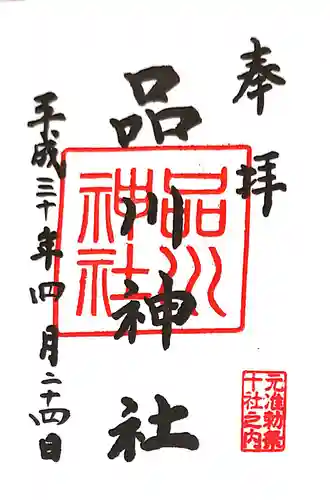 奉拝
品川神社
品川
神社
平成三十年四月二十四日
元准勅祭
十社之内